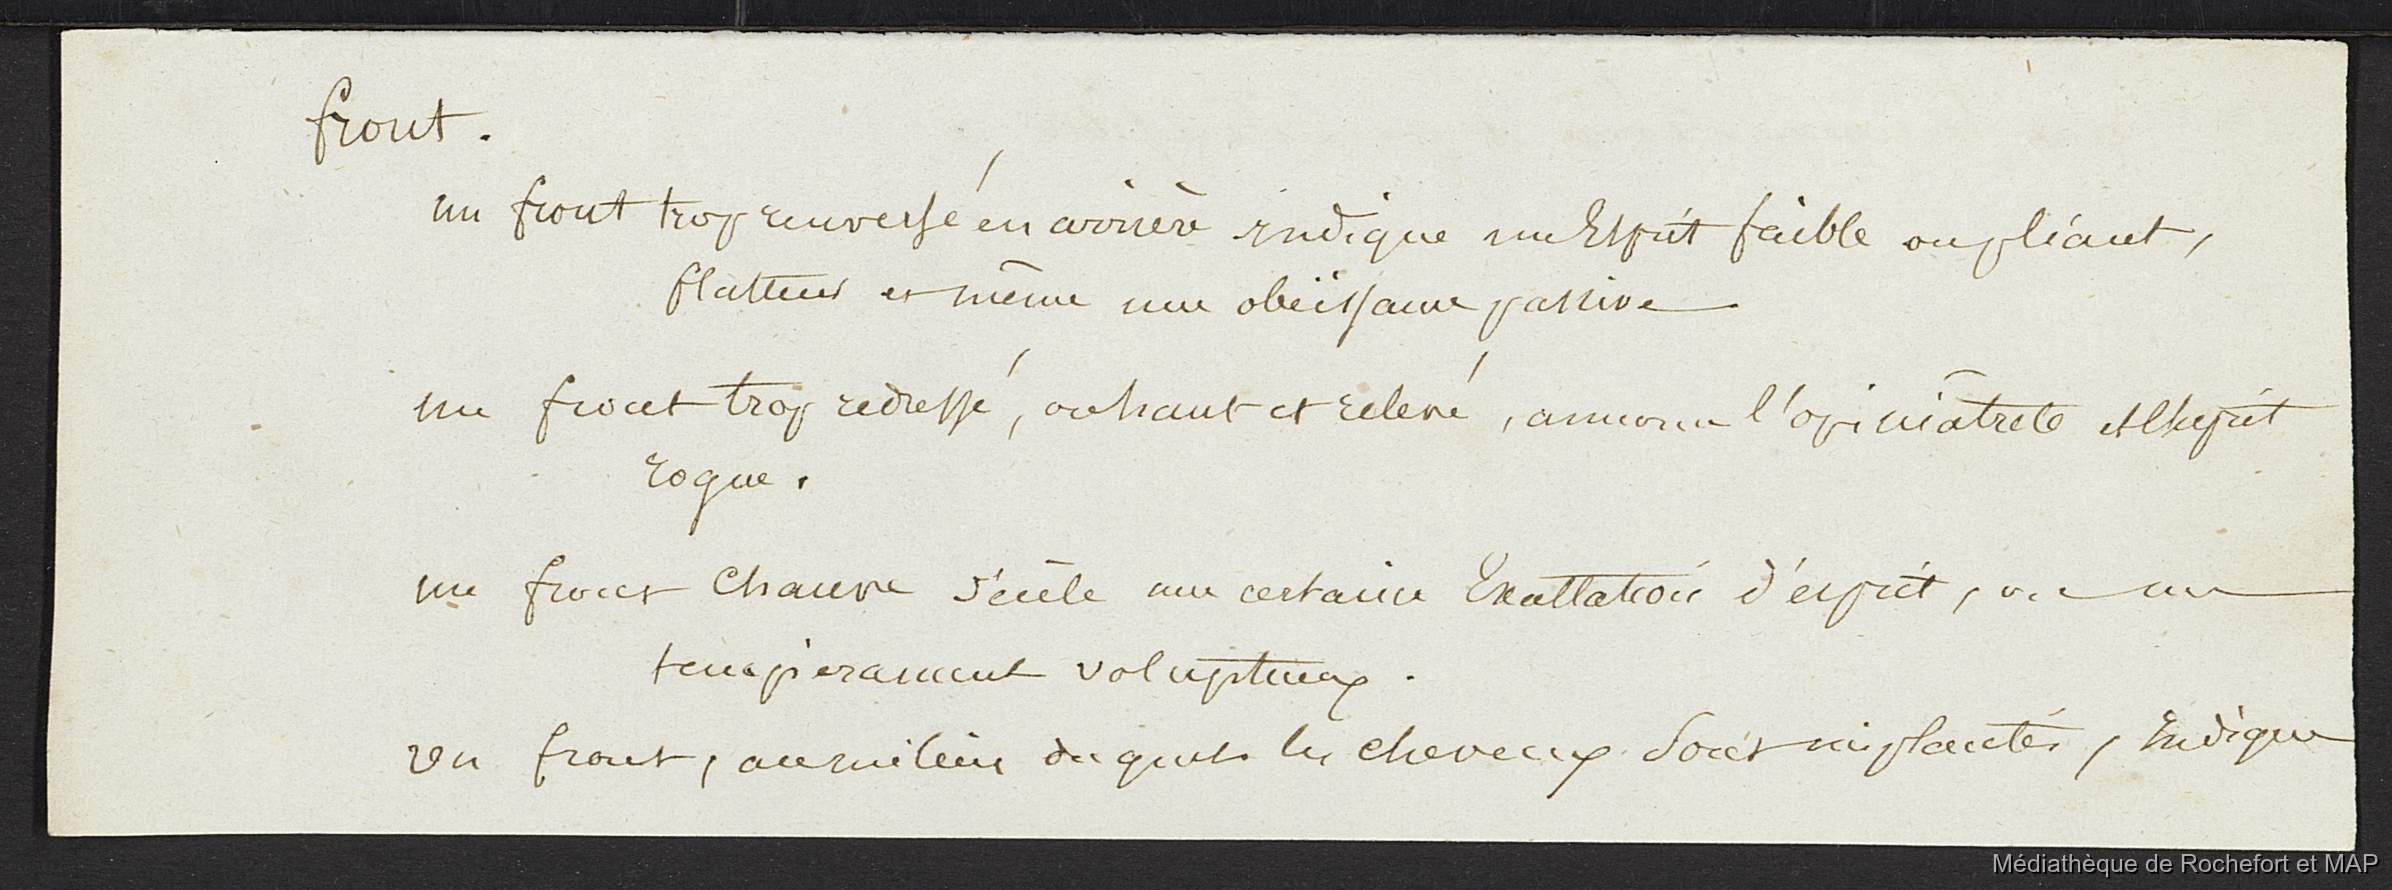 front.
un front trop renversé en arrière indique un Esprit faible ou pliant,
flatteur et même une obéïssance passive
un front trop redressé, ou haut et relevé, annonce l'opiniâtreté et l'esprit
rogue.
un front chauve décèle une certaine Exaltation d'esprit, ou un
temperament voluptueux.
un front, au milieu duquel les cheveux sont implantés, Indique
Médiathèque de Rochefort et MAP